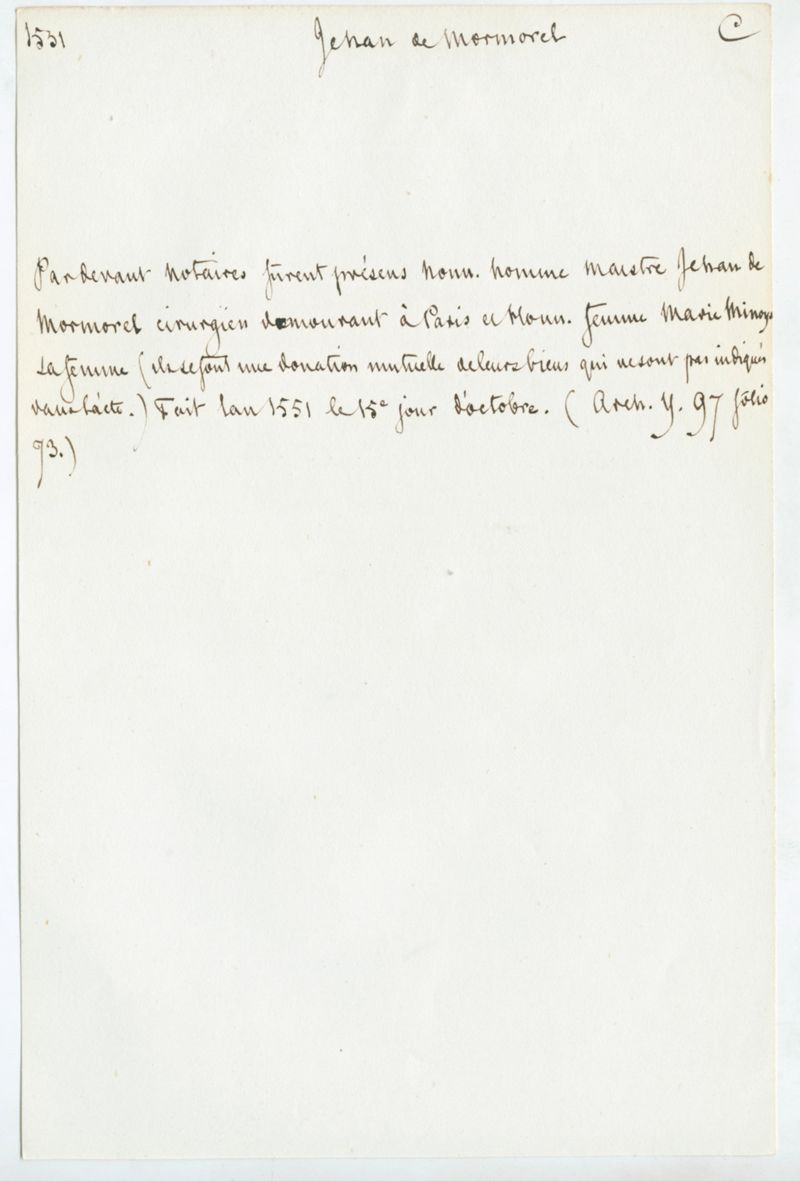 1551 Jehan de Mormorel C
Par devant notaires furent présens honn. homme maistre Jehan de
Mormorel cirurgien demourant à Paris et honn. femme Marie Minoys
sa femme (ils se font une donation mutuelle de leurs biens qui ne sont pas indiqués
dans l'acte.) Fait l'an 1551 le 15e jour d'octobre. (Arch. Y. 97 folio
73.)